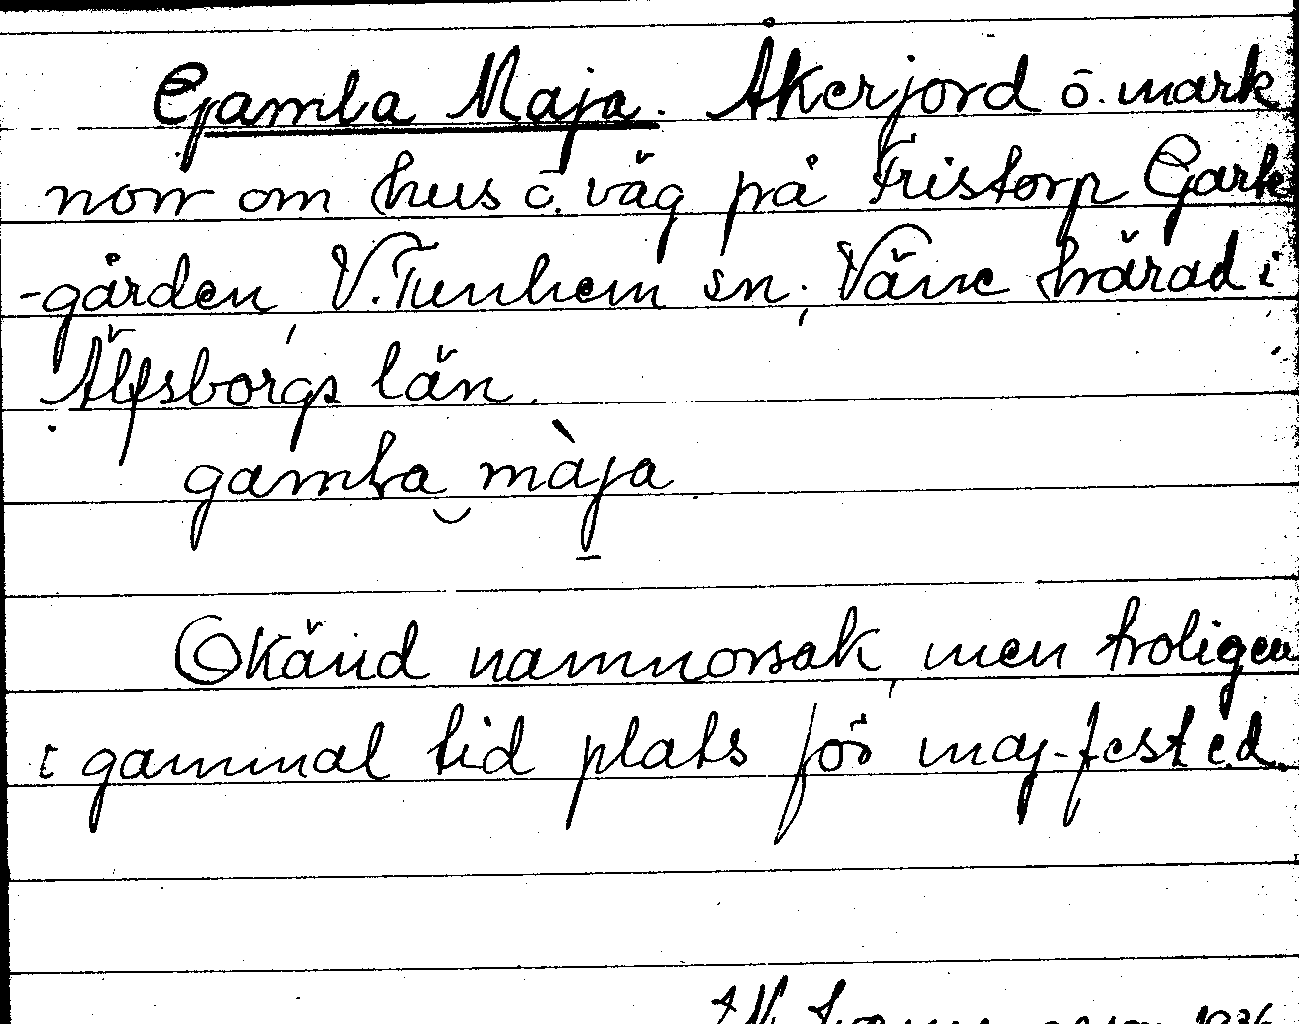 Gamla Maja. Åkerjord o. mark
norr om hus o. väg på Fristorp Gark
-gården, V. Tunhem sn, Väne härad i
Älfsborgs län.
gamla màja
Okänd namnorsak, men troligen
i gammal tid plats för maj-fest e.d.
1936